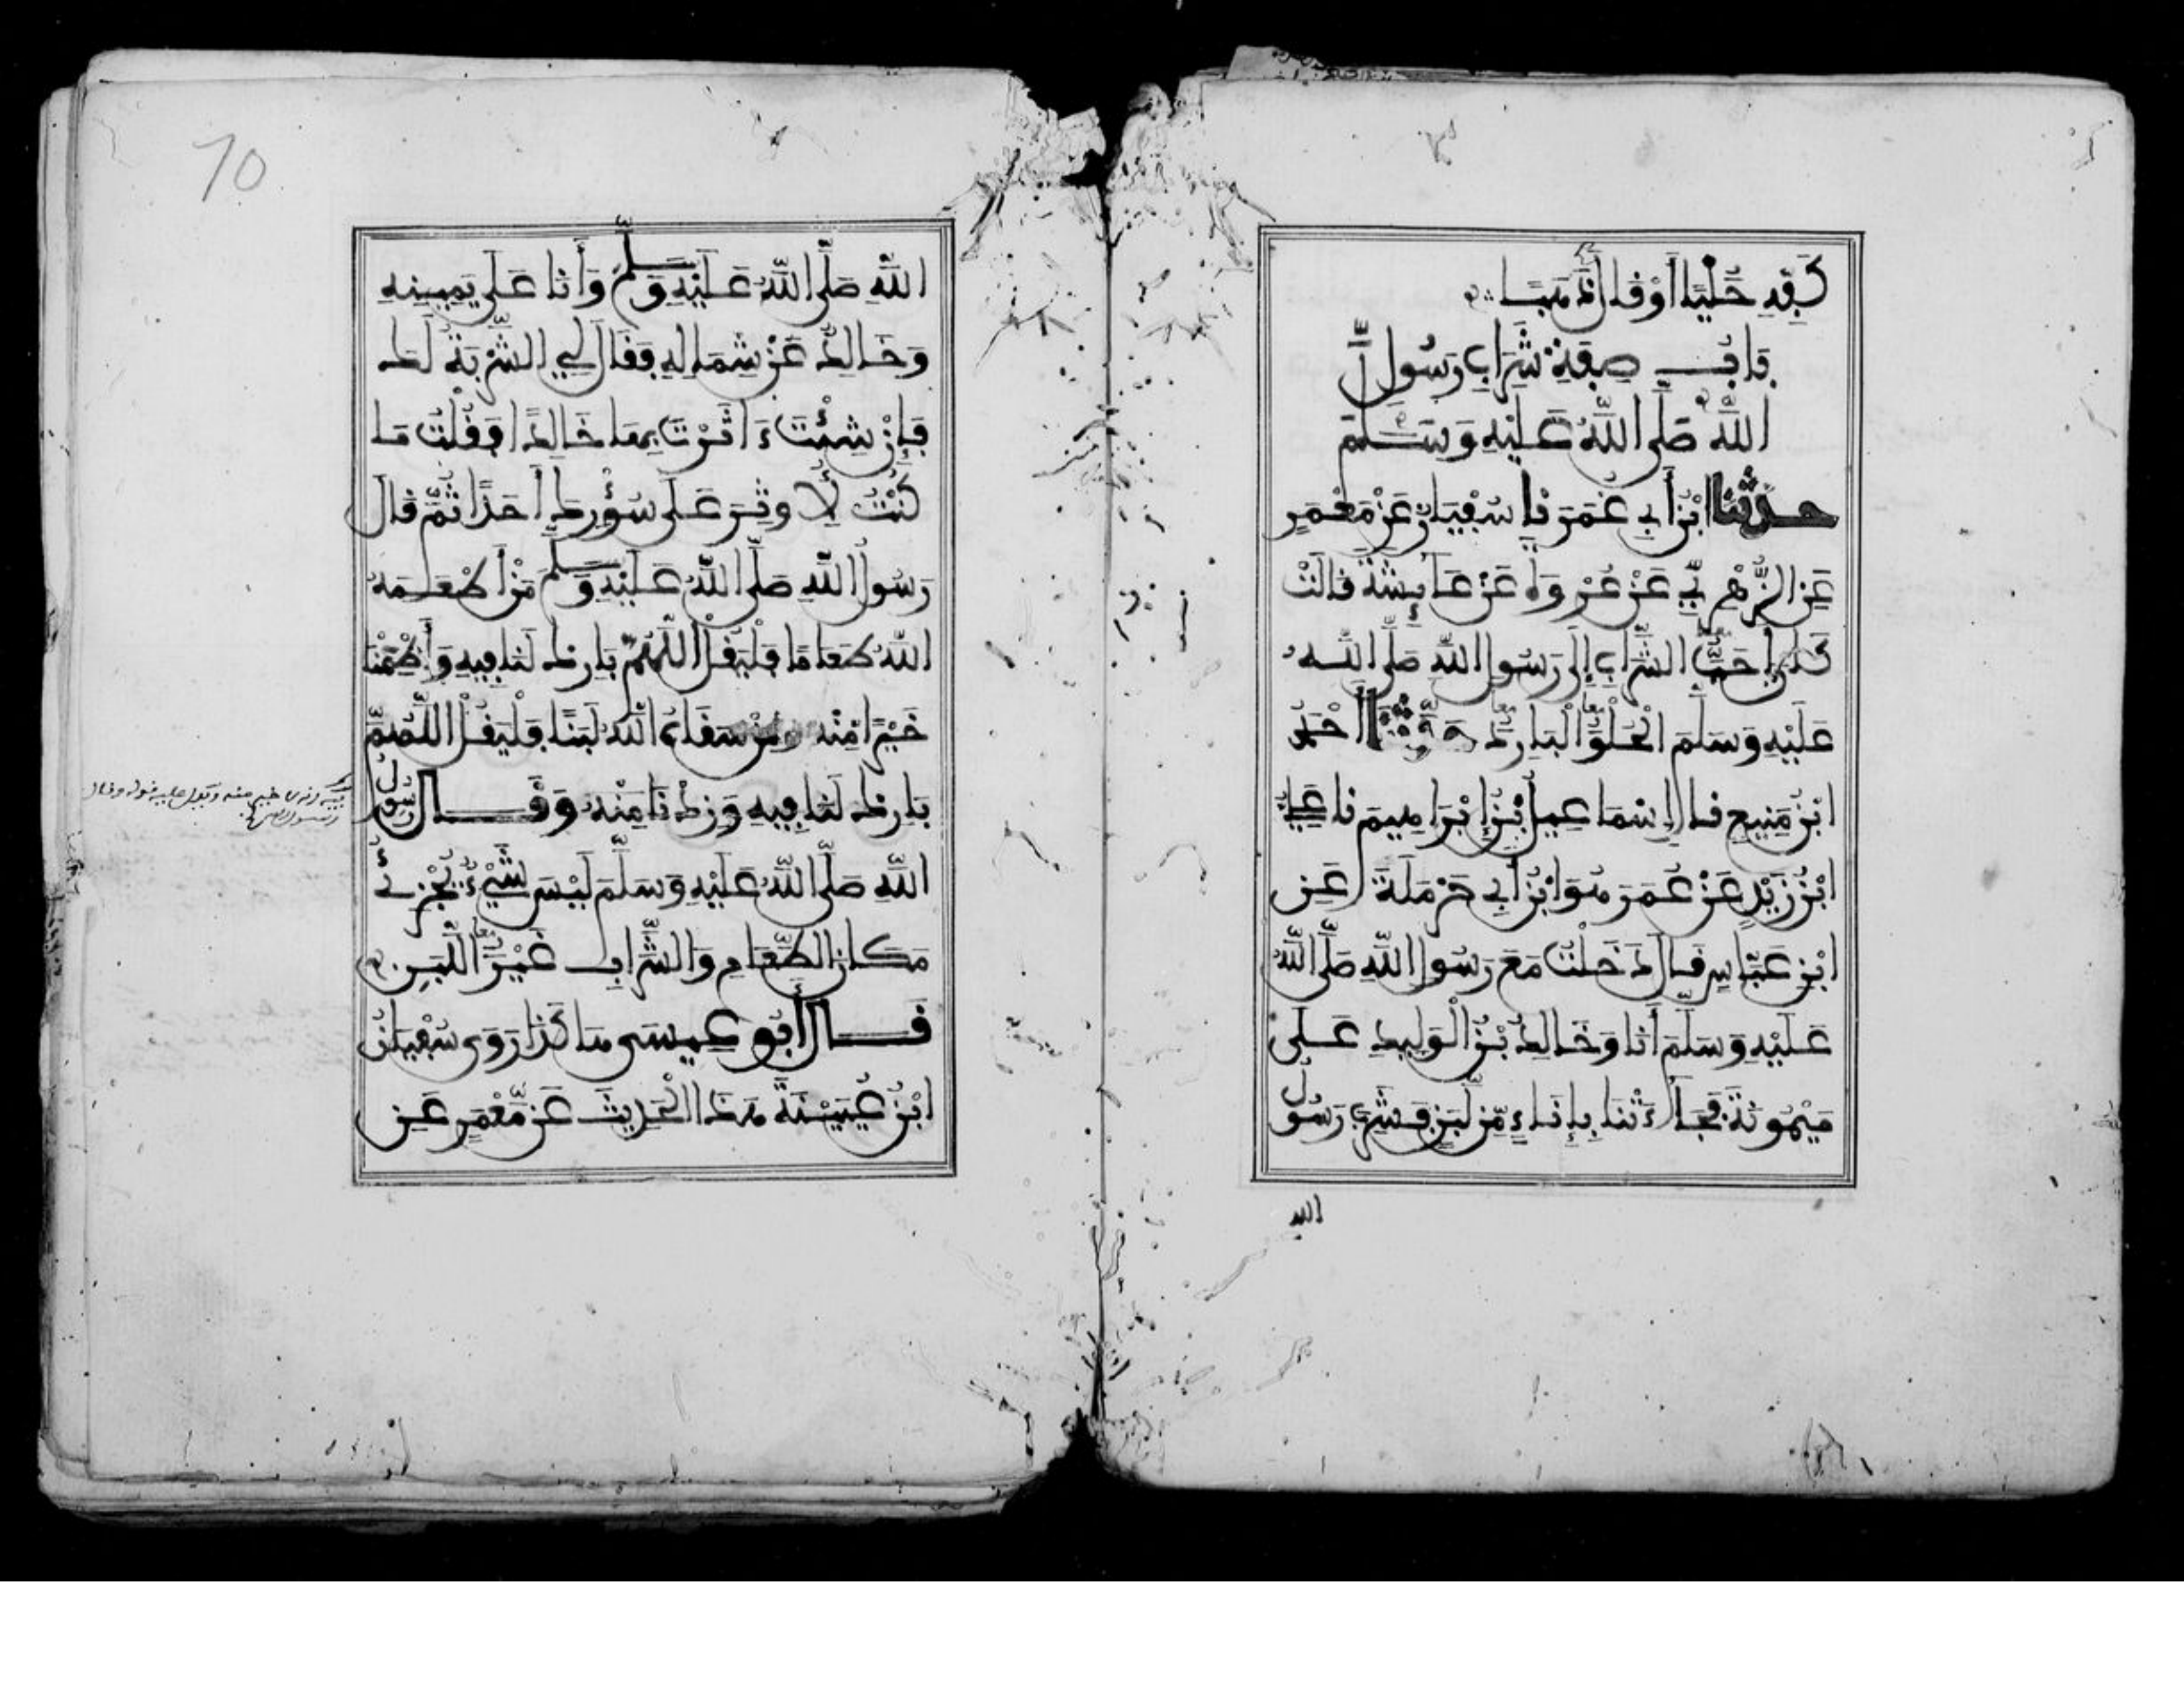 كَفِّهِ حُلِيًّا أَوْ قَالَ ذَهَبًا
بَابُ صِفَةِ شَرَابِ رَسُولِ
اللَّهِ صَلَّى اللَّهُ عَلَيْهِ وَسَلَّمَ
حدثنا ابْنُ أَبِي عُمَرَ نا سُفْيَانُ عَنْ مَعْمَرٍ
عَنِ الزُّهْرِيِّ عَنْ عُرْوَةَ عَنْ عَائِشَةَ قَالَتْ
كَانَ أَحَبُّ الشَّرَابِ إِلَى رَسُولِ اللَّهِ صَلَّى اللَّهُ
عَلَيْهِ وَسَلَّمَ الْحُلْوُ الْبَارِدُ حَدَّثَنَا أَحْمَدُ
ابْنُ مَنِيعٍ قَالَ إِسْمَاعِيلُ بْنُ إِبْرَاهِيمَ نا عَلِيُّ
ابْنُ زَيْدٍ عَنْ عُمَرَ هُوَ ابْنُ أَبِي حَرْمَلَةَ عَنِ
ابْنِ عَبَّاسٍ قَالَ دَخَلْتُ مَعَ رَسُولِ اللَّهِ صَلَّى اللَّهُ
عَلَيْهِ وَسَلَّمَ أَنَا وَخَالِدُ بْنُ الْوَلِيدِ عَلَى
مَيْمُونَةَ فَجَاءَتْنَا بِإِنَاءٍ مِّن لَّبَنٍ فَشَرِبَ رَسُولُ
الله
70
اللَّهِ صَلَّى اللَّهُ عَلَيْهِ وَسَلَّمَ وَأَنَا عَلَى يَمِينِهِ
وَخَالِدٌ عَنْ شِمَالِهِ فَقَالَ لِي الشَّرْبَةُ لَكَ
فَإِنْ شِئْتَ ءَاثَرْتَ بِهَا خَالِدًا فَقُلْتُ مَا
كُنْتُ لِأُوثِرَ عَلَى سُؤْرِكَ أَحَدًا ثُمَّ قَالَ
رَسُولُ اللَّهِ صَلَّى اللَّهُ عَلَيْهِ وَسَلَّمَ مَنْ أَطْعَمَهُ
اللَّهُ طَعَامًا فَلْيَقُلْ اللَّهُمَّ بَارِكْ لَنَا فِيهِ وَأَطْعِمْنَا
خَيْرًا مِنْهُ وَمَنْ سَقَاهُ اللَّهُ لَبَنًا فَلْيَقُلْ اللَّهُمَّ
بَارِكْ لَنَا فِيهِ وَزِدْنَا مِنْهُ وَقَالَ رَسُولُ
اللَّهِ صَلَّى اللَّهُ عَلَيْهِ وَسَلَّمَ لَيْسَ شَيْءٌ يُجْزِئُ
مَكَانَ الطَّعَامِ وَالشَّرَابِ غَيْرُ اللَّبَنِ
قَالَ أَبُو عِيسَى هَاكَذَا رَوَى سُفْيَانُ
ابْنُ عُيَيْنَةَ هَذَا الْحَدِيثَ عَنْ مَّعْمَرٍ عَنِ